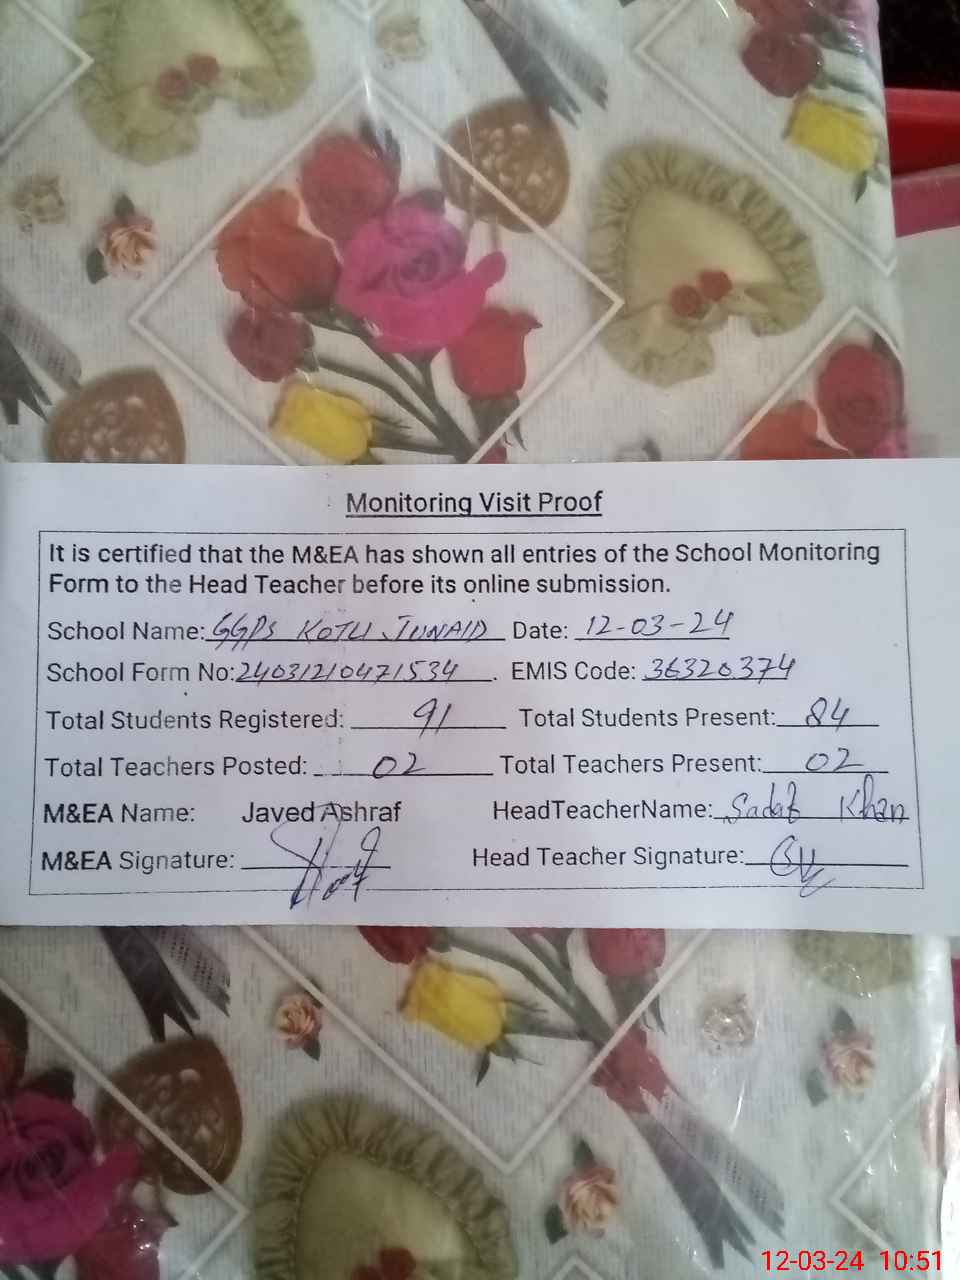 Monitoring Visit Proof
It is certified that the M&EA has shown all entries of the School Monitoring
Form to the Head Teacher before its online submission.
School Name: GGPS KOTLI JUNAID Date: 12-03-24
School Form No: 24031210471534. EMIS Code: 36320374
Total Students Registered: 91 Total Students Present: 84
Total Teachers Posted: 02 Total Teachers Present: 02
M&EA Name: Javed Ashraf HeadTeacherName: Khan
M&EA Signature: Head Teacher Signature:
12-03-24 10:51